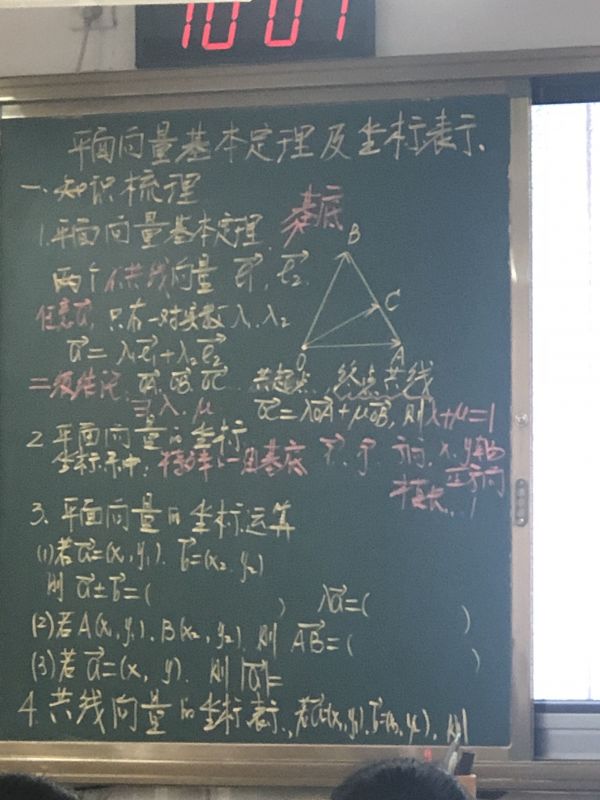 10 01
平面向量基本定理及坐标表示.
一.知识梳理
1.平面向量基本定理. 基底
两个不共线向量 e₁, e₂.
任意a, 只有一对实数 λ₁, λ₂
a = λ₁e₁ + λ₂e₂
B
C
O
A
二级结论: OA, OB, OC 共起点, 终点共线
∃ λ, μ OC = λOA + μOB, 则 λ+μ=1
2 平面向量的坐标.
坐标系中, 一组基底 i, j 方向, x, y轴的
正方向
模长 1
3. 平面向量的坐标运算
(1)若a=(x₁, y₁). b=(x₂, y₂)
则 a±b=( ) λa=( )
(2)若A(x₁, y₁), B(x₂, y₂) 则 AB=( )
(3)若a=(x, y). 则 |a|=
4. 共线向量的坐标表示, 若a=(x₁, y₁), b=(x₂, y₂), 则